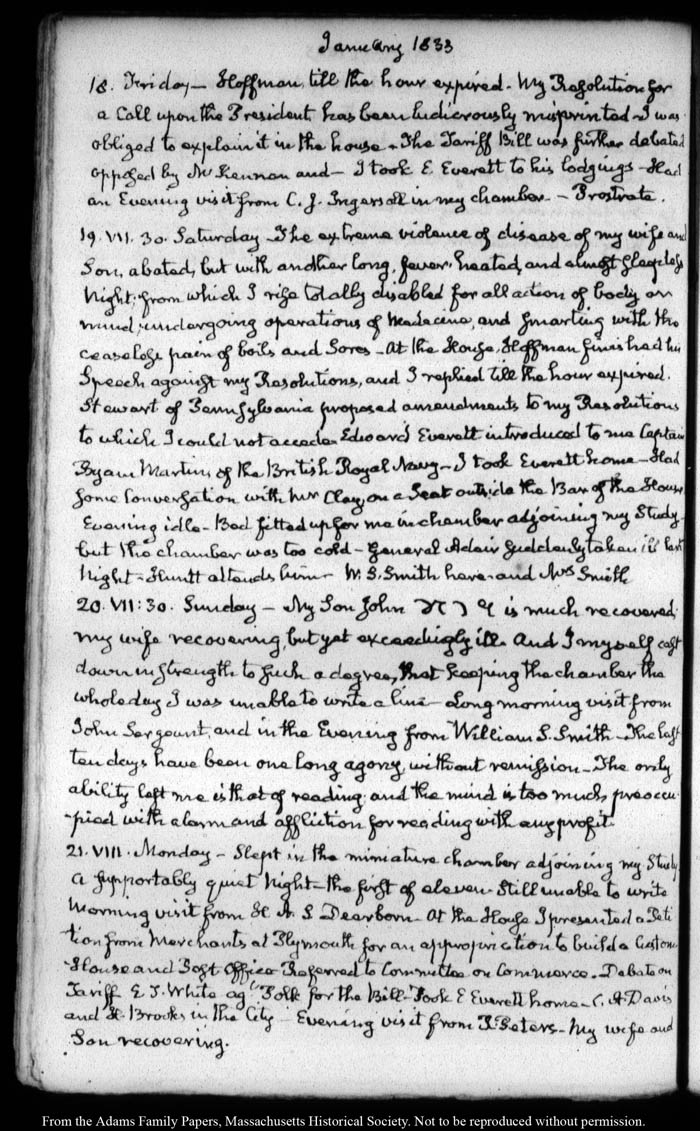 January 1833
18. Friday — Hoffman, till the hour expired. My Resolution for
a Call upon the President has been ludicrously misprinted — I was
obliged to explain it in the house — The Tariff Bill was further debated
opposed by McKennan and — I took E. Everett to his lodgings — Had
an Evening visit from C. J. Ingersoll in my chamber. — Prostrate.
19. VII. 30. Saturday — The extreme violence of disease of my wife and
Son, abated, but with another long, fever-heated, and almost sleepless
Night, from which I rise totally disabled for all action of body or
mind, undergoing operations of Medecine, and smarting with the
ceaseless pain of boils and Sores — At the House, Hoffman finished his
Speech against my Resolutions, and I replied till the hour expired.
Stewart of Pennsylvania proposed amendments to my Resolutions
to which I could not accede. Edward Everett introduced to me Captain
Byam Martin, of the British Royal Navy — I took Everett home — Had
some Conversation with Mr Clay, on a Seat outside the Bar of the House
Evening idle — Bed fitted up for me in chamber adjoining my Study —
but the chamber was too cold — General Adair suddenly taken ill last
Night — Huntt attends him — W. S. Smith here and Mrs Smith
20. VII: 30. Sunday — My Son John is much recovered,
my wife recovering, but yet exceedingly ill. And I myself cast
down in strength to such a degree, that keeping the chamber the
whole day I was unable to write a line — Long morning visit from
John Sergeant, and in the Evening from William S. Smith — The last
ten days have been one long agony, without remission — The only
ability left me is that of reading, and the mind is too much, preoccu-
-pied with alarm and affliction for reading with any profit.
21. VIII. Monday — Slept in the miniature chamber adjoining my Study,
a supportably quiet Night — the first of eleven. Still unable to write
Morning visit from H. A. S Dearborn — At the House I presented a Peti
tion from Merchants at Plymouth for an appropriation to build a Custom
-House and Post Office Referred to Committee on Commerce. — Debate on
Tariff E. D. White agt Polk for the Bill — Took E Everett home — C. A. Davis
and S. Brooks in the City — Evening visit from R. Peters — My wife and
Son recovering.
From the Adams Family Papers, Massachusetts Historical Society. Not to be reproduced without permission.